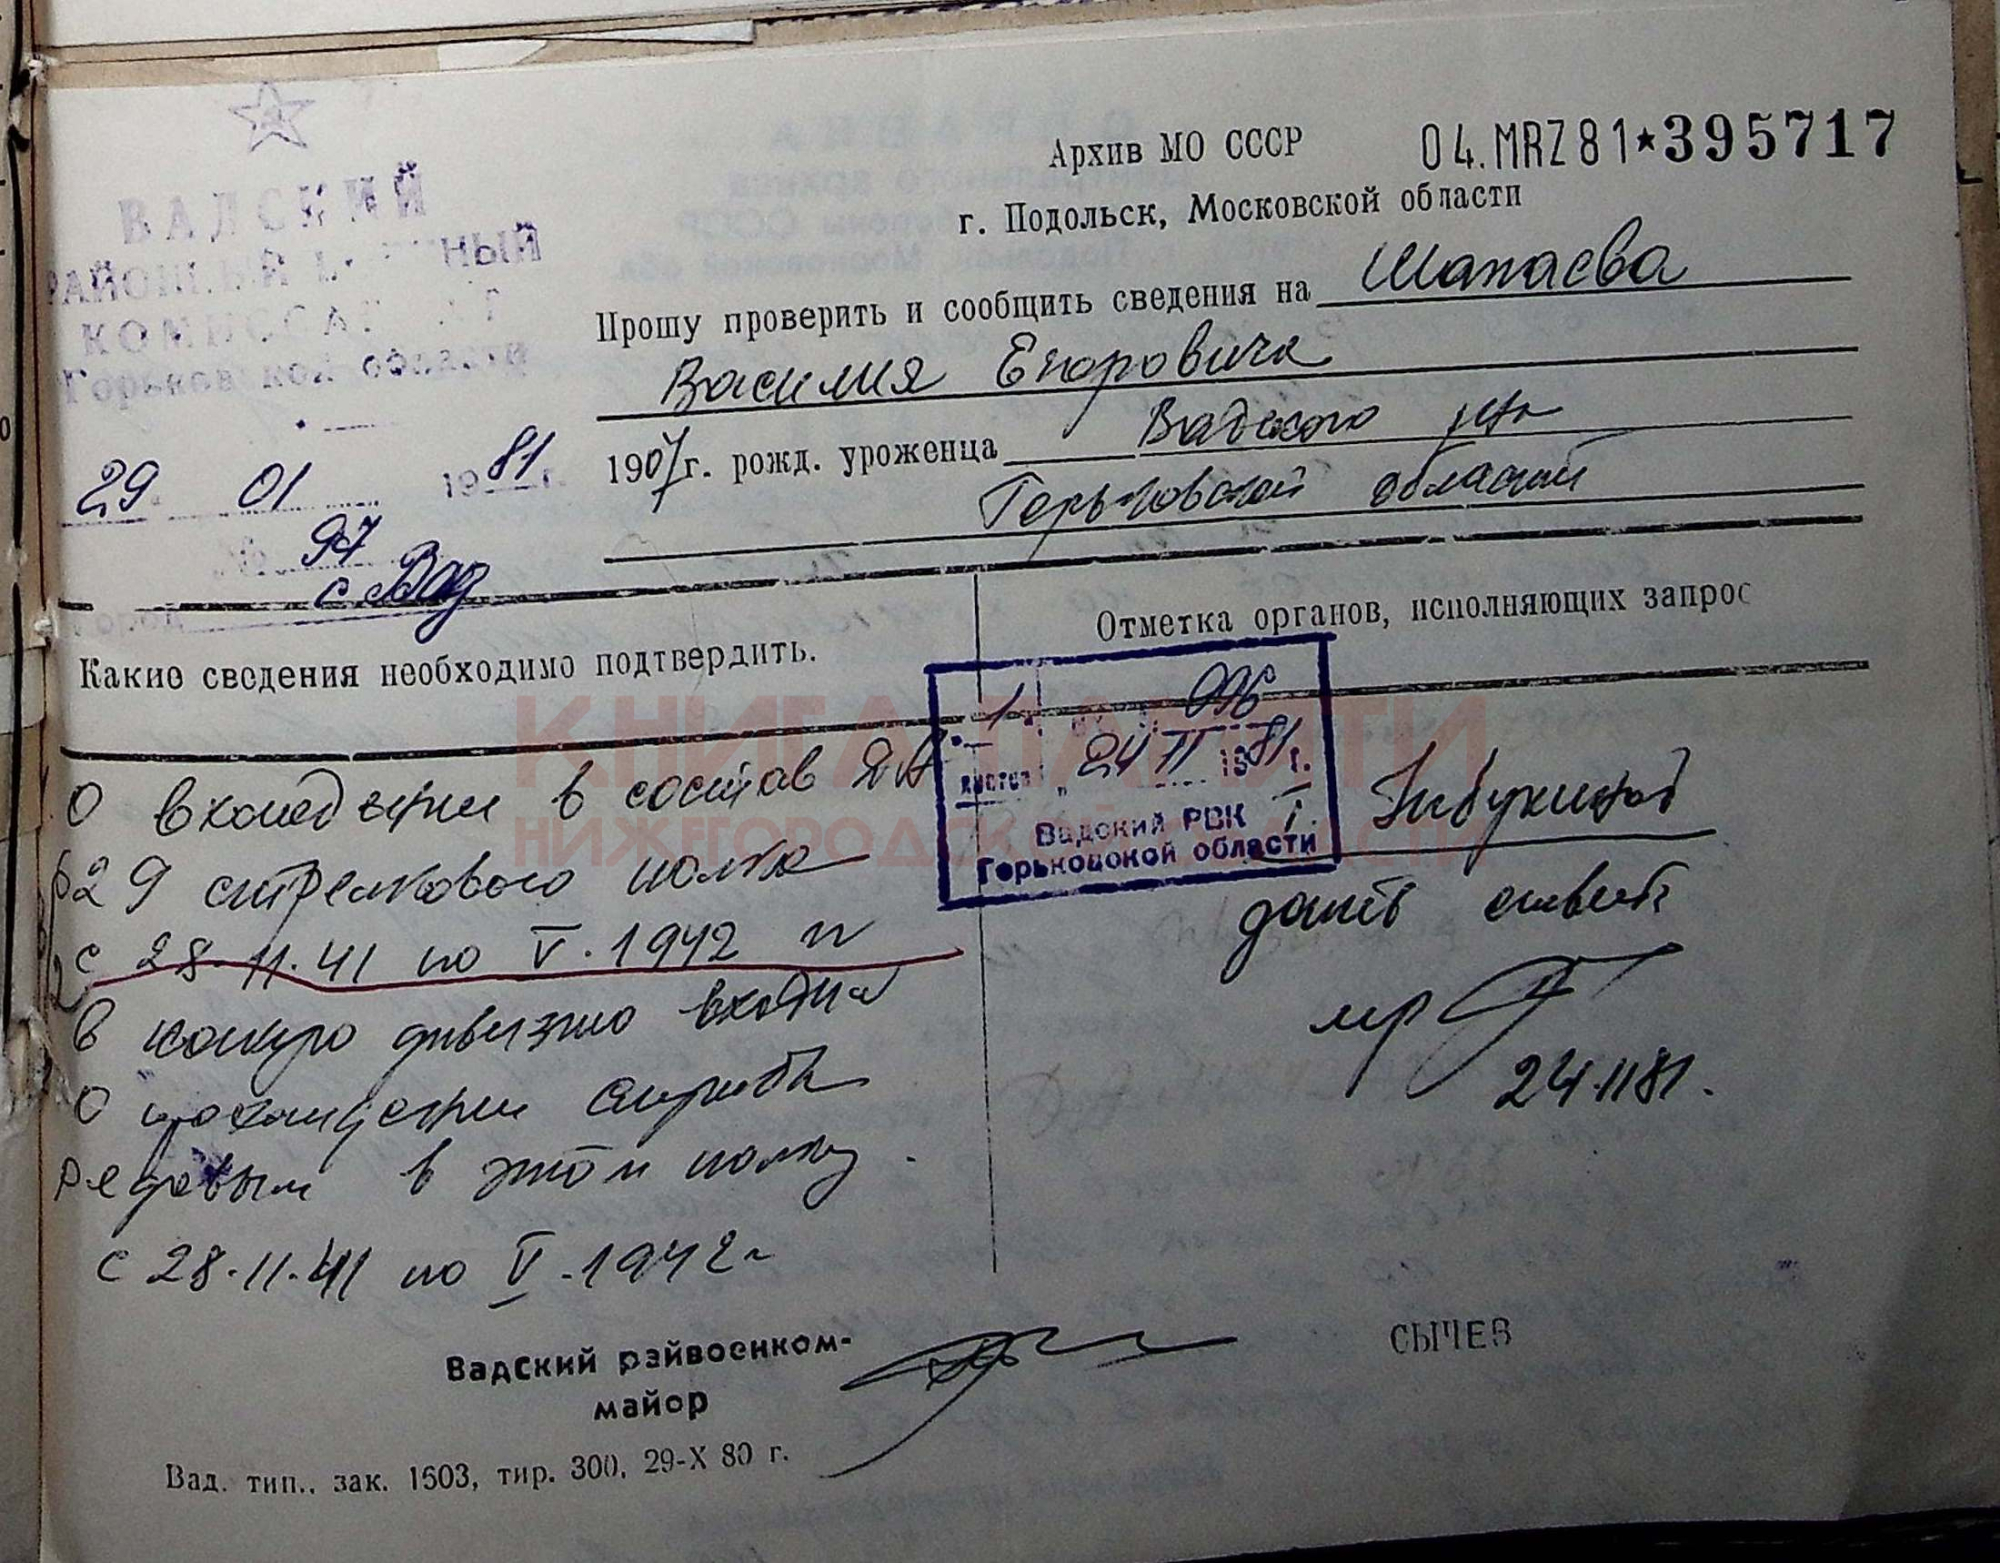 ВАДСКИЙ
РАЙОННЫЙ ВОЕННЫЙ
КОМИССАРИАТ
Горьковской области
29. 01 1981 г.
№ 97
город с. Вад
Архив МО СССР 04.MRZ81★395717
г. Подольск, Московской области
Прошу проверить и сообщить сведения на Шапаева
Василия Егоровича
1907 г. рожд. уроженца Вадского р-на
Горьковской области
Какие сведения необходимо подтвердить.
Отметка органов, исполняющих запрос
О вхождении в состав ДА
629 стрелкового полка
с 28.11.41 по V.1942 г
В какую дивизию входил
О прохождении службы
рядовым в этом полку.
с 28.11.41 по V.1942 г
1
листов 24 II 1981 г.
Вадский РВК
Горьковской области
дать ответ
24.II 81.
Вадский райвоенком-
майор
СЫЧЕВ
Вад. тип., зак. 1503, тир. 300, 29-X 80 г.
КНИГА ПАМЯТИ
НИЖЕГОРОДСКОЙ ОБЛАСТИ